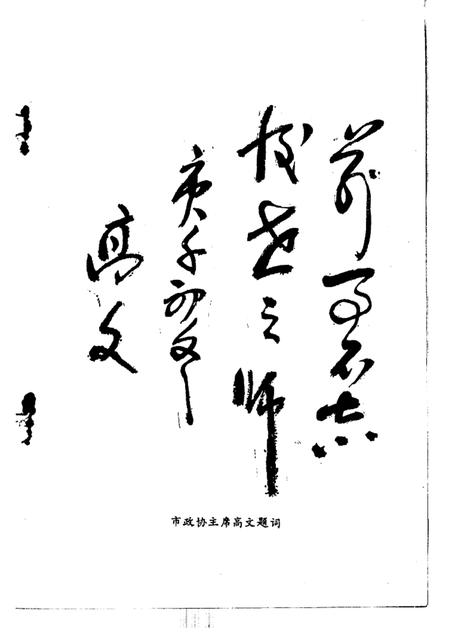 前事不忘
后世之师
庚午初冬
高文
市政协主席高文题词